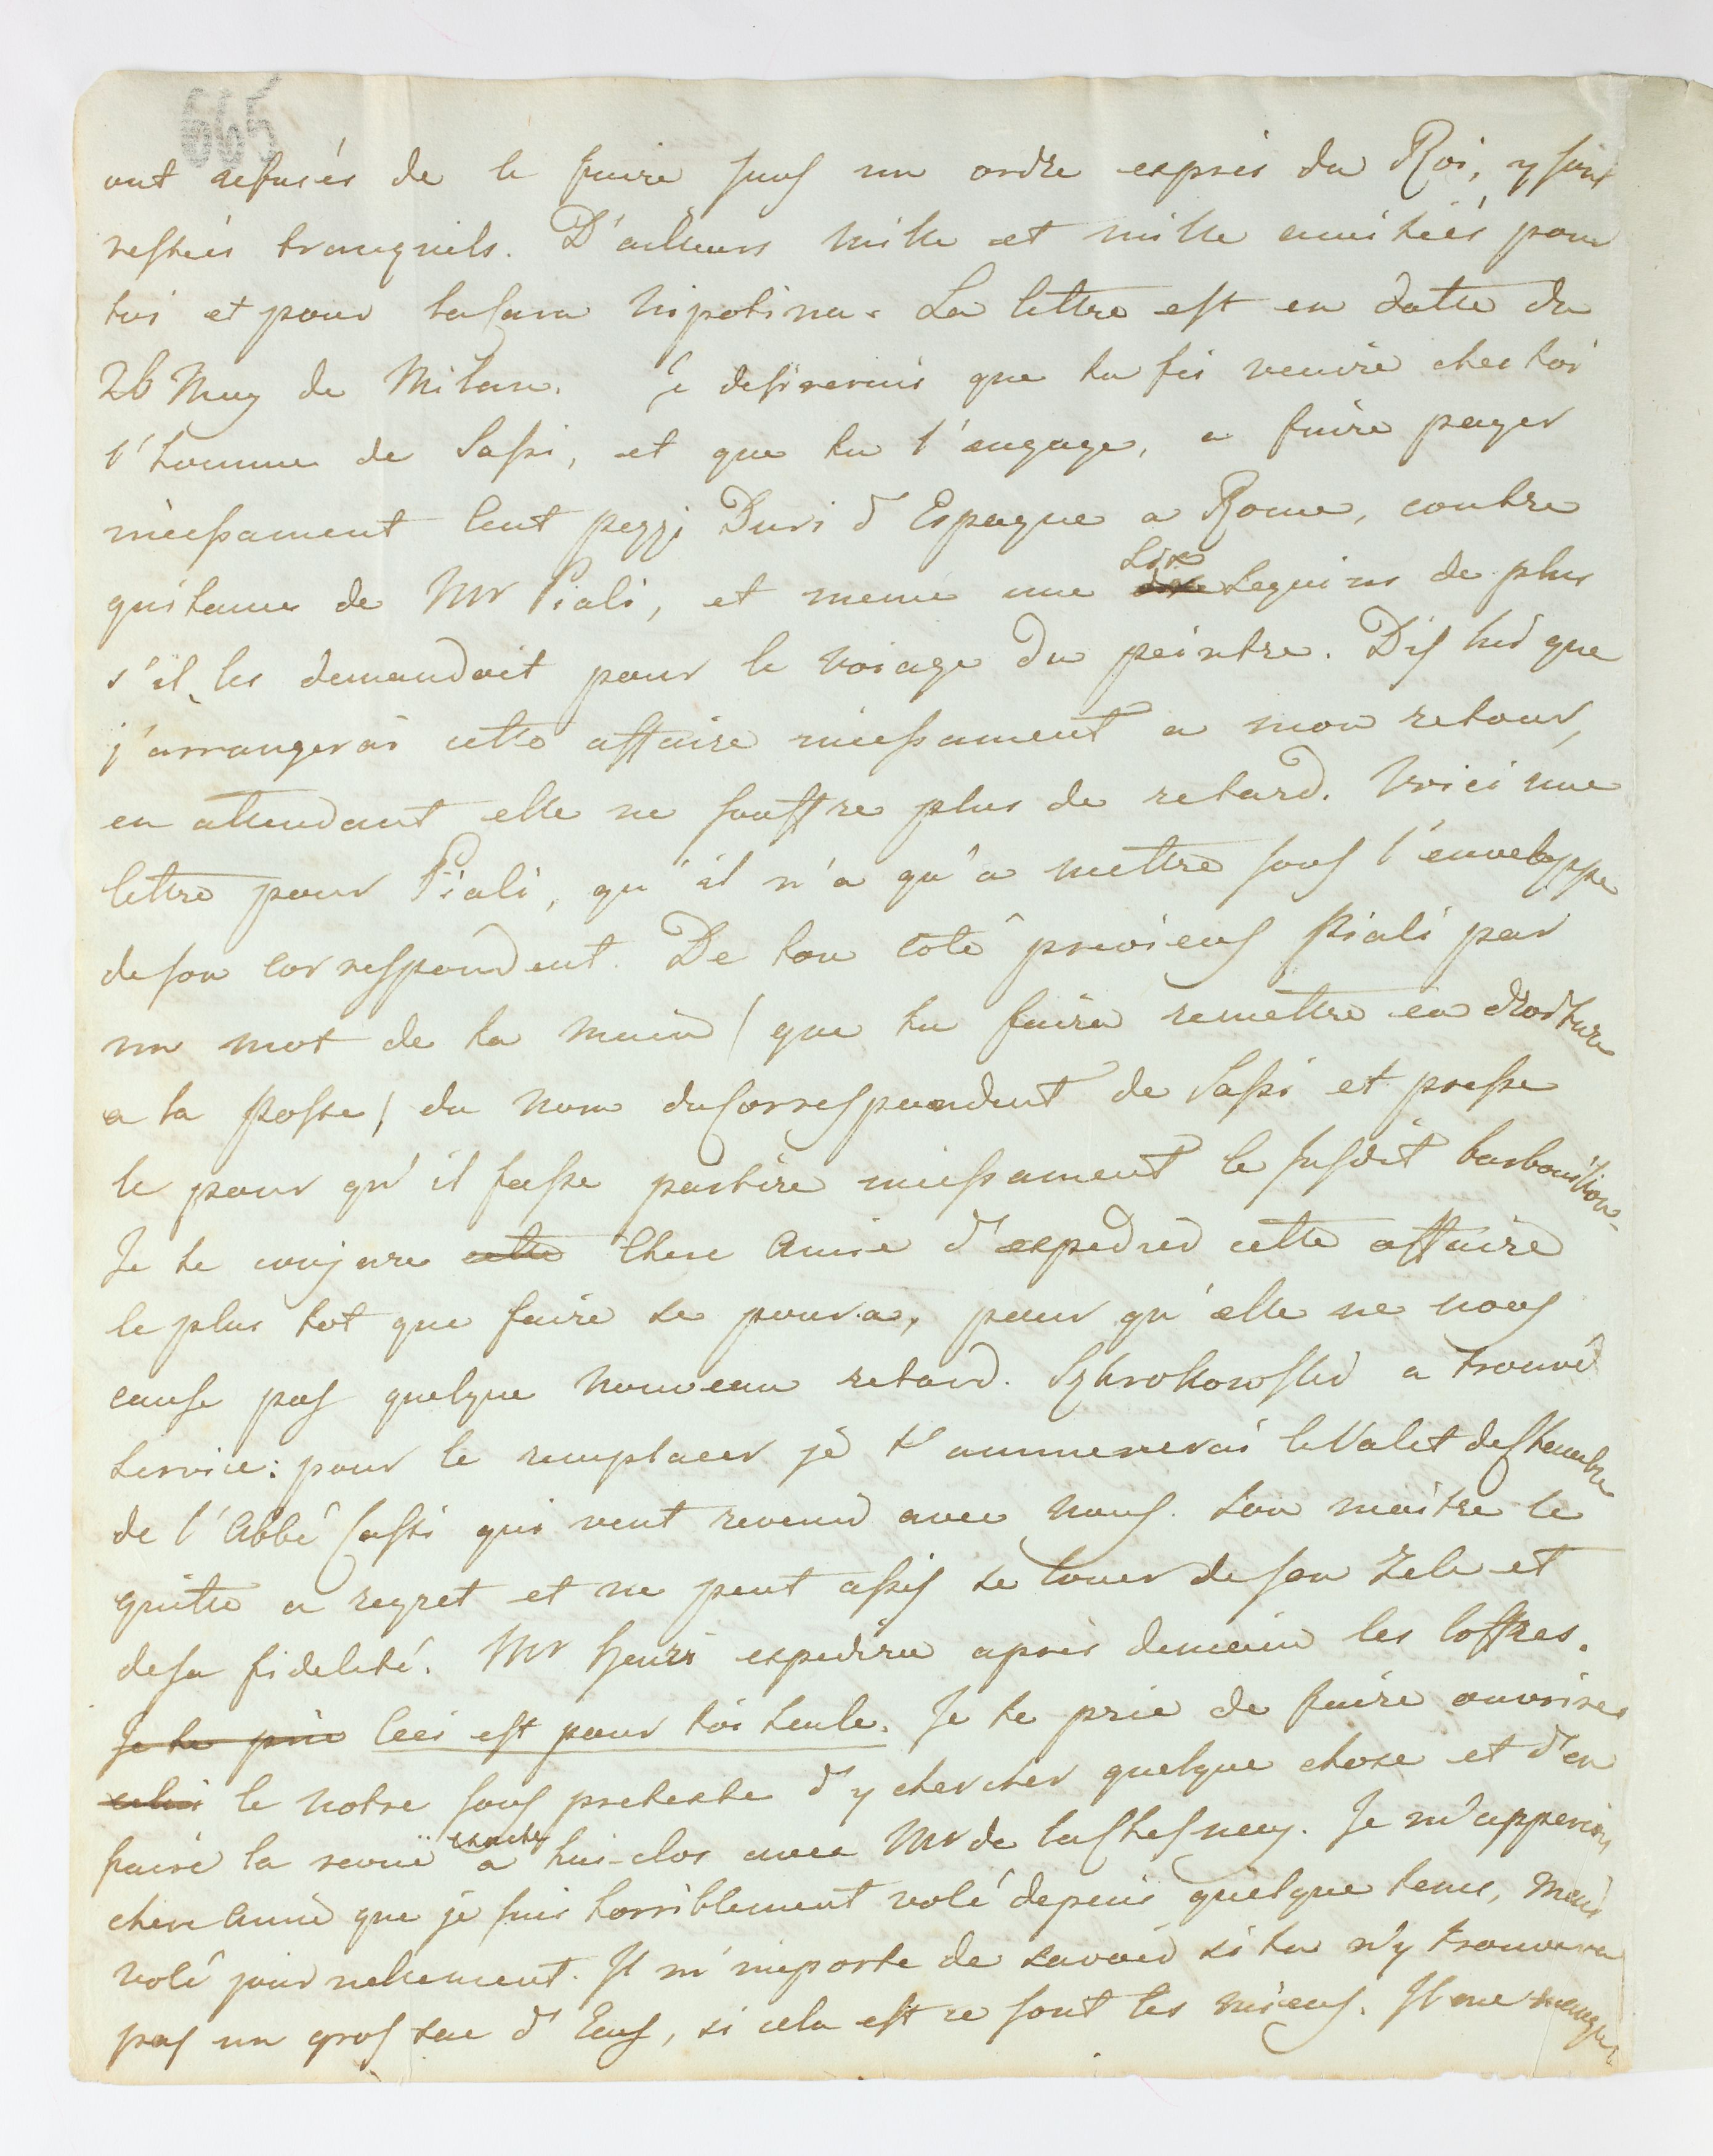 665
ont refusés de le faire sans un ordre exprès du Roi, y sont
restées tranquils. D'ailleurs mille et mille amitiés pour
toi et pour la cara nipotina. La lettre est en datte du
26 May de Milan. Je desirerais que tu fis venire chez toi
l'homme de Sassi, et que tu l'engage, a faire payer
incessament Cent pezzi Duri d'Espagne a Rome, contre
quitance de Mr Piali, et meme une dix Six Sequins de plus
s'il les demandoit pour le voiage du peintre. Dis lui que
j'arrangerai cette affaire incessament a mon retour,
en attendant elle ne souffre plus de retard. Voici une
lettre pour Piali, qu'il n'a qu'a mettre sous l'enveloppe
de son correspondent. De ton coté previens Piali par
un mot de ta main / que tu faira remettre en droiture
a la poste / du nom du Correspondent de Sassi et presse
le pour qu'il fasse partire incessament le susdit barbouillon.
Je te conjure cette Chere Amie d'expedier cette affaire
le plus tot que faire se poura, pour qu'elle ne nous
cause pas quelque nouveau retard. Szkrokowski a trouvé
service: pour le remplacer je t'ammenerai le Valet de Chambre
de l'Abbé Casti qui veut revenir avec nous. Son maitre le
quitte a regret et ne peut assis se louer de son zele et
de sa fidelité. Mr Henri expedira après demain les Coffres.
Je te prie Ceci est pour toi seule. Je te prie de faire ouvrires
celui le notre sous pretexte d'y chercher quelque chose et d'en
faire la revuë exacte a huis-clos avec Mr de la Chesnay. Je m'apperçois
chere Amie que je suis horriblement volé depuis quelque tems, mais
volé journellement. Il m'importe de savoir si tu n'y trouvera
pas un gros sac d'Ecus, si cela est ce sont les miens. Il me manque